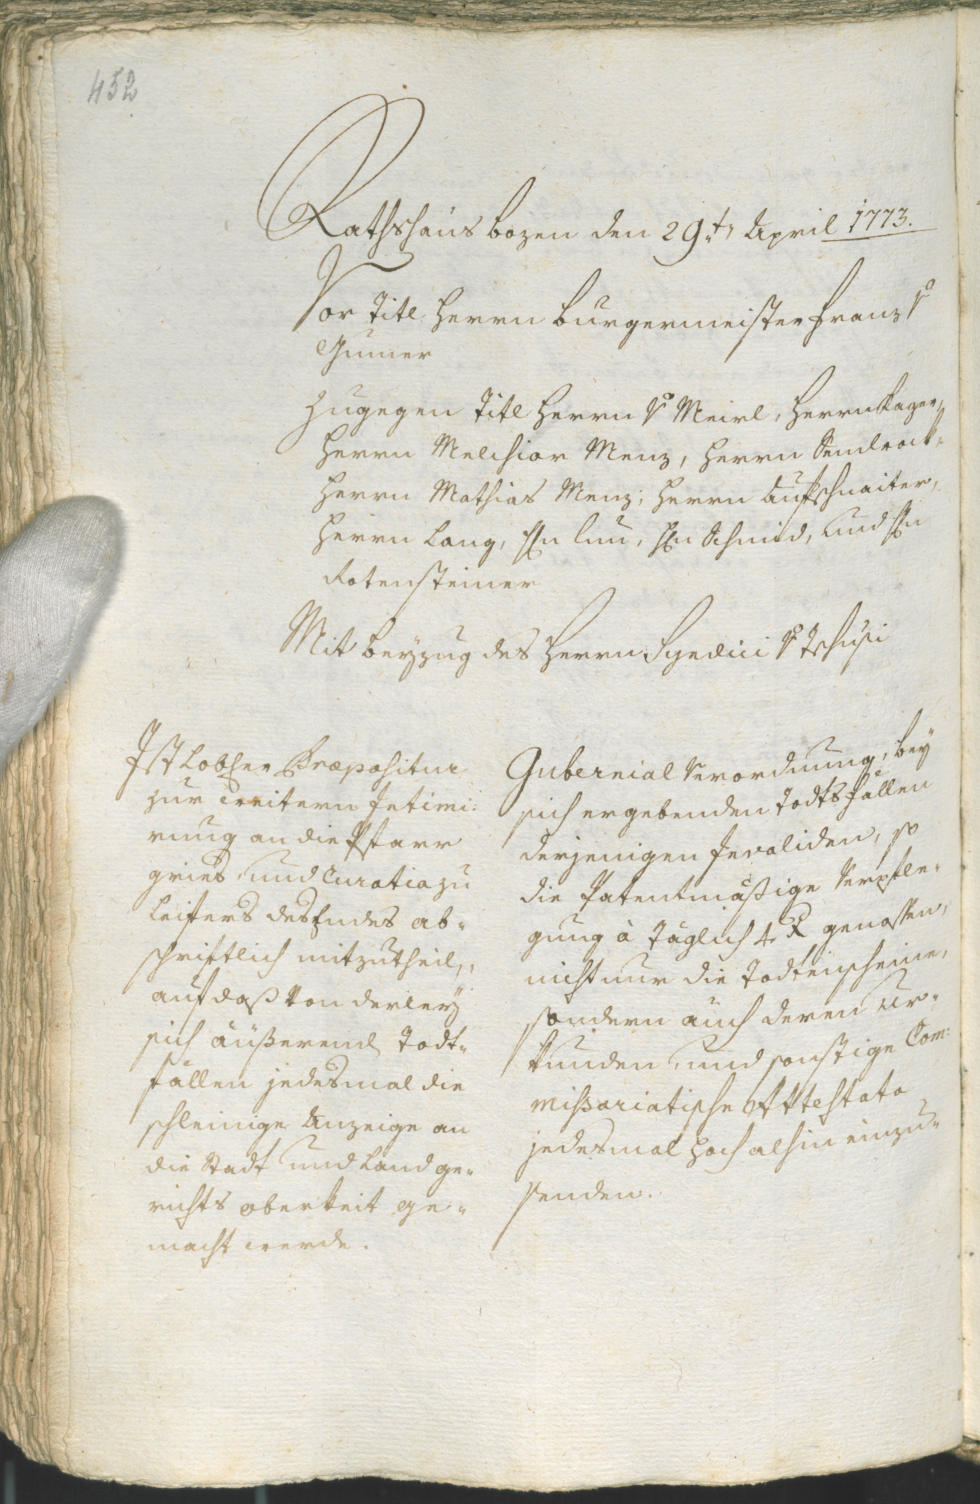 452
Rathshaus bozen den 29.t. April 1773.
Vor Titl Herrn burgermeister Franz v
Gumer
Zugegen Titl Herrn v Meirl, Herrn Kager,
Herrn Melchior Menz, Herrn
Herrn Mathias Menz, Herrn Aufschnaiter,
Herrn Lang, Hn Hn Schmid, und Hn
Rotensteiner
Mit beyzug des Herrn Syndici v Tschusi
Ist Lobser Præpositur
zur weitern Intimi:
rung an die Pfarr
gries und Curatia zu
Leifers des Endes ab-
schriftlich mitzutheil,,
auf daß von derley
sich äußerend Todt-
fällen jedesmal die
schleinige Anzeige an
die Stadt und Landge-
richts oberkeit ge-
macht werde.
Gubernial Verordnung, bey
sich ergebenden Todtsfällen
derjenigen Invaliden, so
die Patentmäßige Verpfle-
gung à täglich 4 X genossen,
nicht nur die Todtenscheine,
sondern auch deren Ur-
kunden und sonstige Com:
missariatische Attestata
jedesmal hoch alhin einzu-
senden.